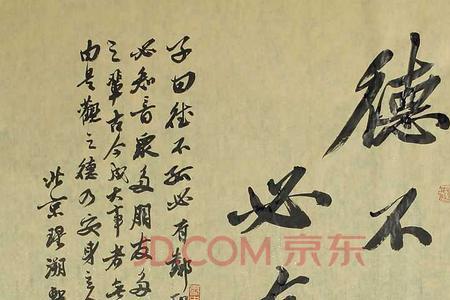 德不
必有
子曰德不孤必有鄰
必知音眾多朋友多
之輩古今成大事者無
由是觀之德乃安身立
北京
JD.COM 京东